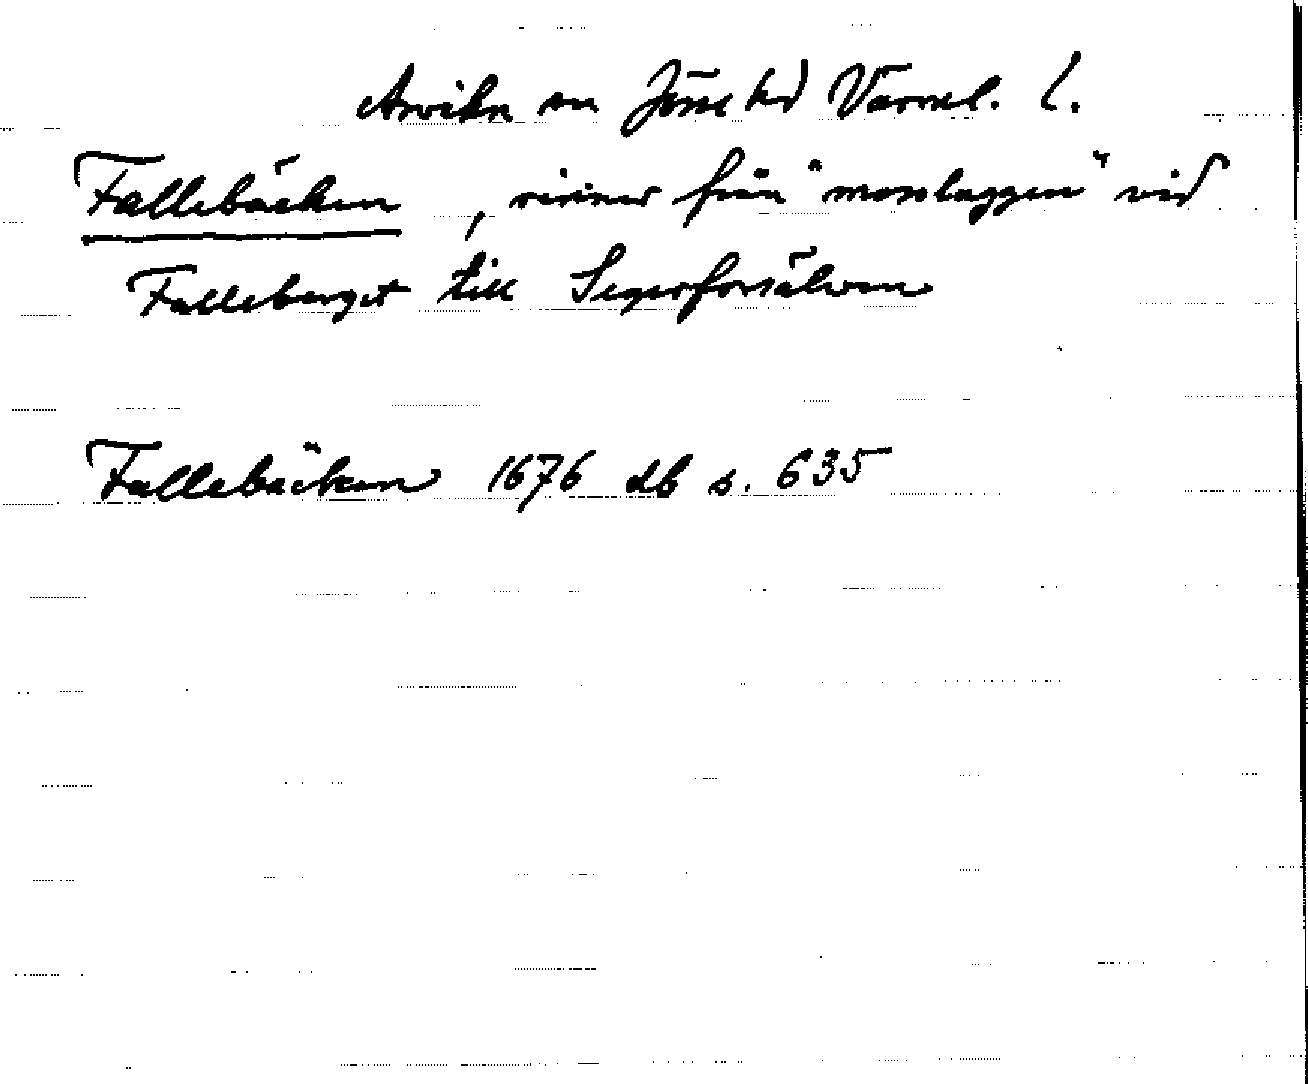 Arvika sn Jösse hd Värml. l.
Fallebäcken, rinner från "mosslaggen" vid
Falleberget till Segerforsälven
Fallebäcken 1676 db s. 635